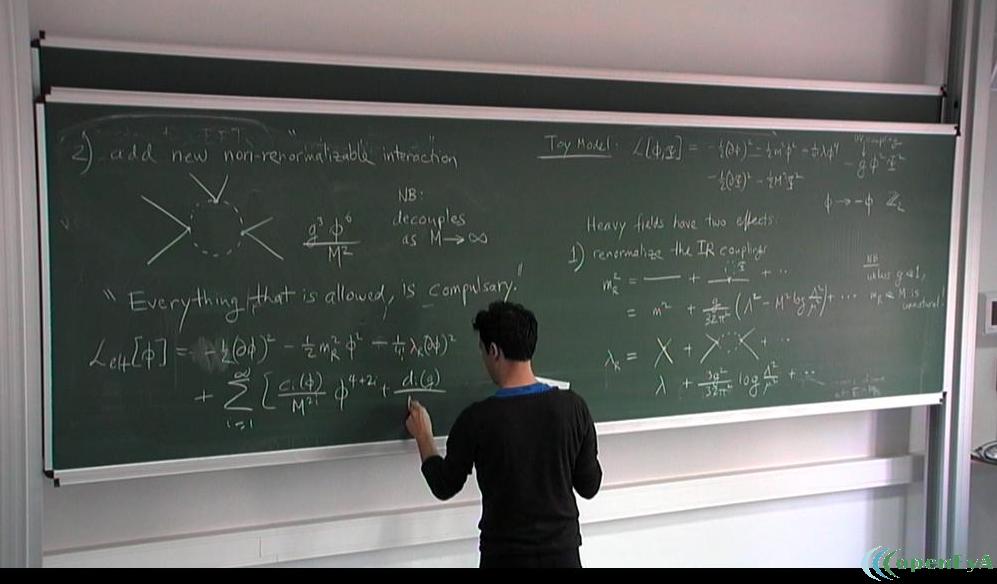 2) add new non-renormalizable interaction"
g³ φ⁶ / M²
NB:
decouples
as M → ∞
"Everything that is allowed, is compulsary."
L_eff[φ] = -½(∂φ)² - ½ m_R² φ² - 1/4! λ_R(∂φ)²
+ Σ_{i=1}^{∞} [ c_i(g)/M^{2i} φ^{4+2i} + d_i(g)
Toy Model: L[φ,Ψ] = -½(∂φ)² - ½m²φ² - 1/4! λφ⁴
-½(∂Ψ)² - ½M²Ψ²
UV coupling
- g φ²Ψ²
φ → -φ Z₂
Heavy fields have two effects:
1) renormalize the IR couplings
m_R² = + + ...
= m² + g/32π² (Λ² - M² log Λ²/μ²) + ...
NB
unless g ≪ 1,
m_R ≪ M is
unnatural!
λ_R = + + ...
λ + 3g²/32π² log Λ²/μ² + ...
openEyA